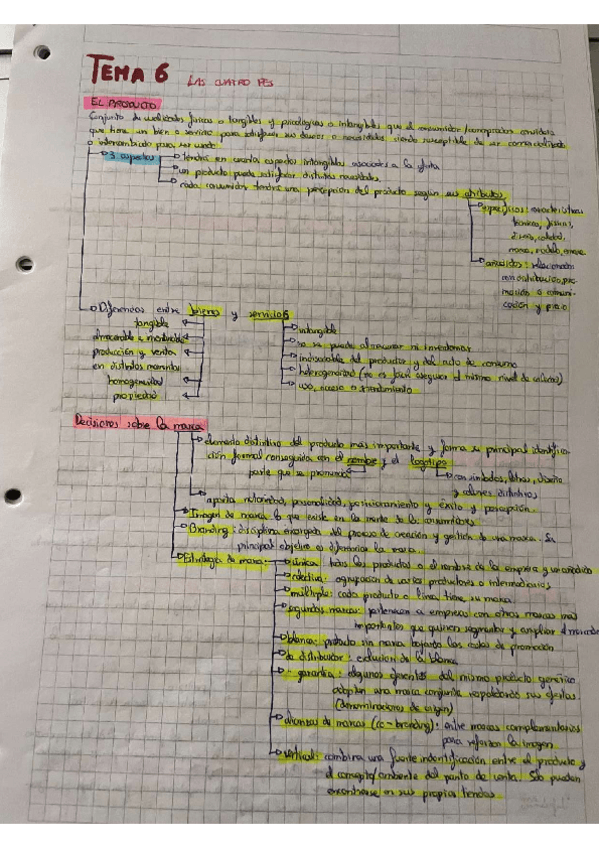 TEMA 6 LAS CUATRO PES
EL PRODUCTO
Conjunto de cualidades físicas o tangibles y psicológicas o intangibles que el consumidor/comprador considera
que tiene un bien o servicio para satisfacer sus deseos o necesidades siendo susceptible de ser comercializado
o intercambiado para su
3 aspectos tendrá en cuenta aspectos intangibles asociados a la oferta
un producto puede satisfacer distintas necesidades
cada consumidor tendrá una percepción del producto según sus atributos
específicos: características
técnicas, físicas,
calidad,
marca, modelo, envase
añadidos: relacionados
con distribución, pro-
moción o comuni-
cación y precio
Diferencias entre bienes y servicios
tangible
intangible
almacenable e inventariable
no se puede almacenar ni inventariar
producción y ventas
en distintos momentos
indisociable del productor y del acto de consumo
homogeneidad
heterogeneidad (no es fácil asegurar el mismo nivel de calidad)
propiedad
uso, acceso o arrendamiento
Decisiones sobre la marca
elemento distintivo del producto más importante y forma su principal identifi-
cación formal conseguida con el nombre y el logotipo
parte que se pronuncia
con símbolos, letras, diseño
y colores distintivos
aporta notoriedad, personalidad, posicionamiento y éxito y percepción.
Imagen de marca: lo que existe en la mente de los consumidores
Branding: disciplina encargada del proceso de creación y gestión de una marca. Su
principal objetivo es diferenciar la marca.
Estrategia de marca: única: todos los productos o el nombre de la empresa y un
colectiva: agrupación de varios productores o intermediarios
múltiple: cada producto o línea tiene su marca
segundas marcas: pertenecen a empresas con otras marcas más
importantes que quieren segmentar y ampliar el mercado
blanca: producto sin marca bajando los costes de promoción
de distribuidor: evolución de la blanca
garantía: algunos del mismo producto genérico
adoptan una marca conjunta respaldando sus ofertas
(denominaciones de origen)
alianzas de marcas (co-branding): entre marcas complementarias
para reforzar la imagen
vertical: combina una fuerte indentificación entre el producto y
el concepto/ambiente del punto de venta. Solo pueden
encontrarse en sus propias tiendas